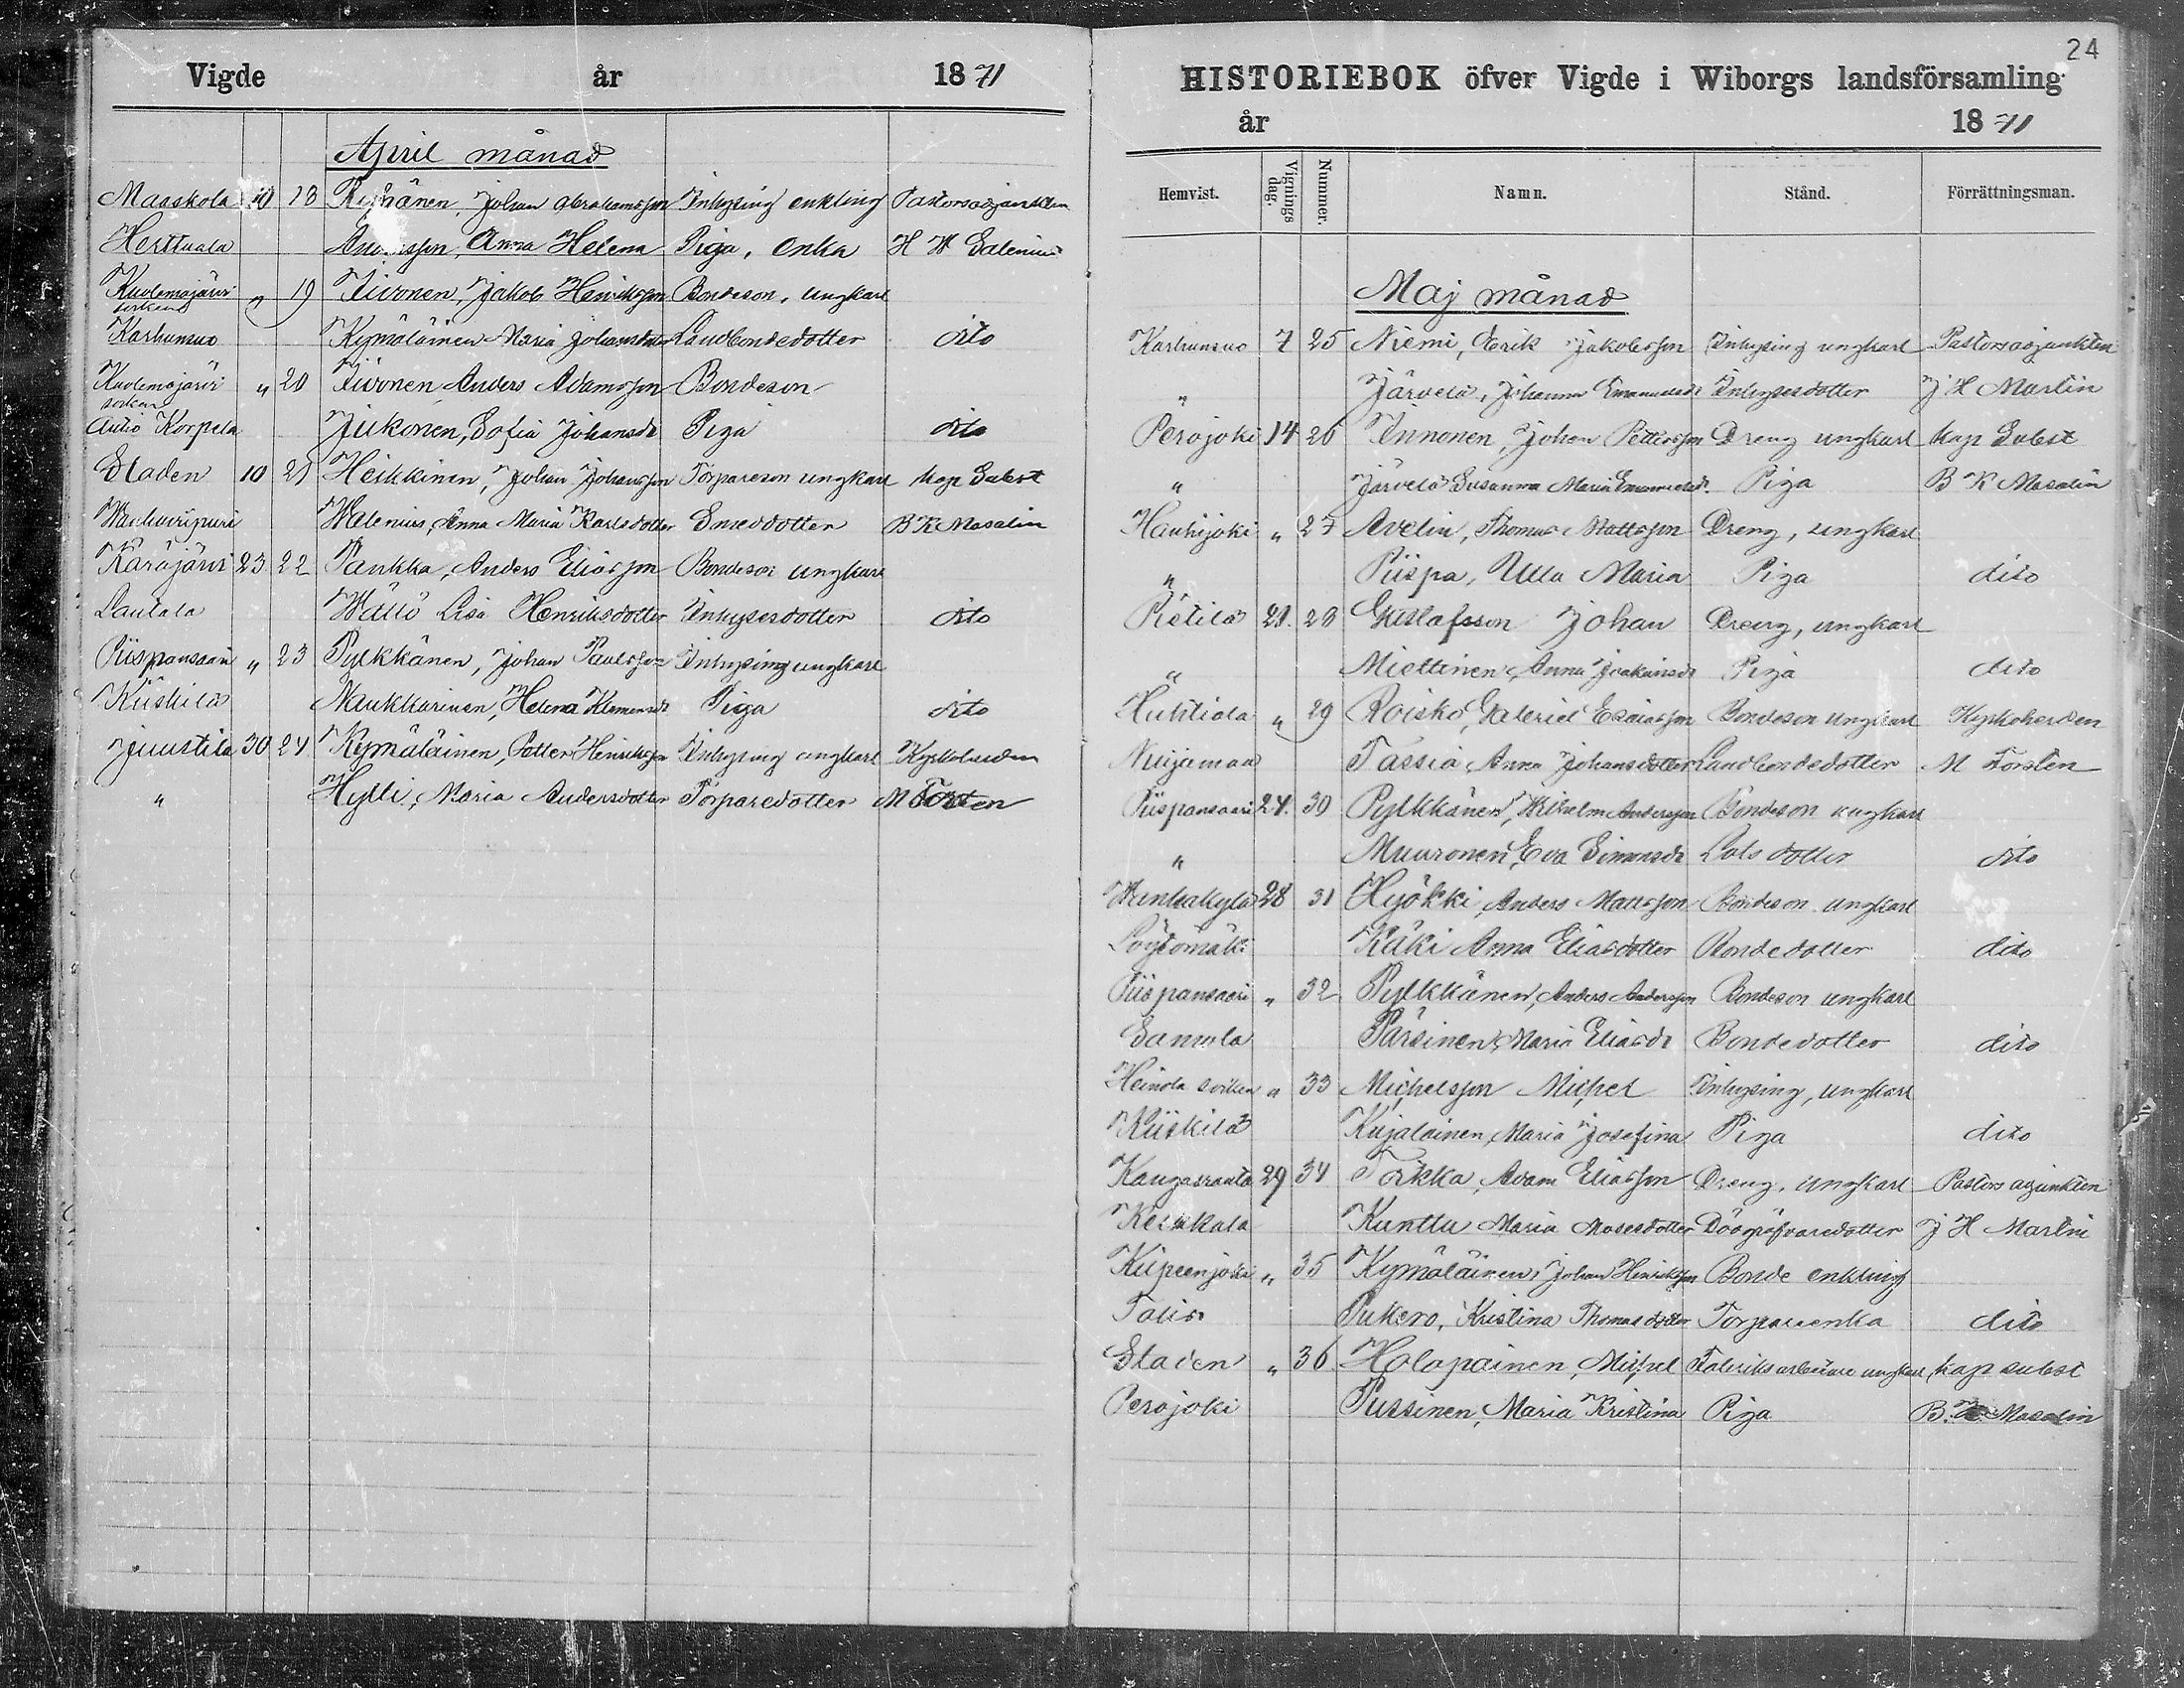 Vigde år 1871
April månad
Maaskola 10 18 Reponen, Johan Abrahamsson Inhysing enkling Pastorsadjunkten
Herttuala Anna Helena Piga, enka H W
Kuolemajärvi socken " 19 Tiivonen, Jakob Henriksson Bondeson, ungkarl
Karhunsuo Kymäläinen Maria Johansdotter Landbondedotter dito
Kuolemajärvi socken " 20 Tiivonen Anders Adamsson Bondeson
Autio Korpela Jukonen, Sofia Johansdr Piga dito
Staden 10 21 Heikkinen, Johan Johansson Torpareson ungkarl Kap Subst
Wanhaviipuri Walenius, Anna Maria Karlsdotter Smeddotter B K Masalin
Käräjärvi 23 22 Pankka, Anders Eliasson Bondeson ungkarl
Lautala Wällö Lisa Henriksdotter Inhysesdotter dito
Piispansaari " 23 Pylkkänen, Johan Paulsson Inhysing ungkarl
Kiiskilä Naukkarinen, Helena Klemensdr Piga dito
Juustila 30 24 Kymäläinen, Petter Henriksson Inhysing ungkarl Kyrkoherden
" Hylli, Maria Andersdotter Torparedotter M Forsten
24
HISTORIEBOK öfver Vigde i Wiborgs landsförsamling
år 1871
Hemvist. Vignings dag. Nummer. Namn. Stånd. Förrättningsman.
Maj månad
Karhunsuo 7 25 Niemi, Erik Jakobsson Inhysing ungkarl Pastorsadjunkten
" Järvelä, Johanna Emanuelsdr Inhysesdotter J H Martin
Perojoki 14 26 Innonen, Johan Pettersson Dreng ungkarl Kap Subst
" Järvelä Susanna Maria Emanuelsdr. Piga B K Masalin
Hanhijoki " 27 Avelin, Thomas Mattsson Dreng, ungkarl
" Piispa, Ulla Maria Piga dito
Pietilä 21. 28 Gustafsson Johan Dreng, ungkarl
" Miettinen, Anna Joakimsdr Piga dito
Huhtiala " 29 Roisko, Gabriel Esaiasson Bondeson ungkarl Kyrkoherden
Nuijamaa Tassia, Anna Johansdotter Landbondedotter M Forsten
Piispansaari 24. 30 Pylkkänen, Wilhelm Andersson Bondeson ungkarl
" Muuronen, Eva Simonsdr Lots dotter dito
Wanhakylä 28 31 Hyökki, Anders Mattsson Bondeson ungkarl
Löytömäki Käki Anna Eliasdotter Bondedotter dito
Piispansaari " 32 Pylkkänen, Anders Andersson Bondeson ungkarl
Samola Pärsinen, Maria Eliasdr Bondedotter dito
Heinola socken " 33 Michelsson Michel Inhysing, ungkarl
Kiiskilä Kujalainen, Maria Josefina Piga dito
Kangasranta 29 34 Torkka, Adam Eliasson Dreng, ungkarl Pastors adjunkten
Kelkkala Kunttu Maria Mosesdotter Dödgräfvaredotter J H Martin
Kilpeenjoki " 35 Kymäläinen, Johan Henriksson Bonde enkling
Talis Pukero, Kristina Thomasdotter Torpareenka dito
Staden " 36 Holopainen, Michel Fabriksarbetare ungkarl Kap subst
Perojoki Pussinen, Maria Kristina Piga B. K. Masalin